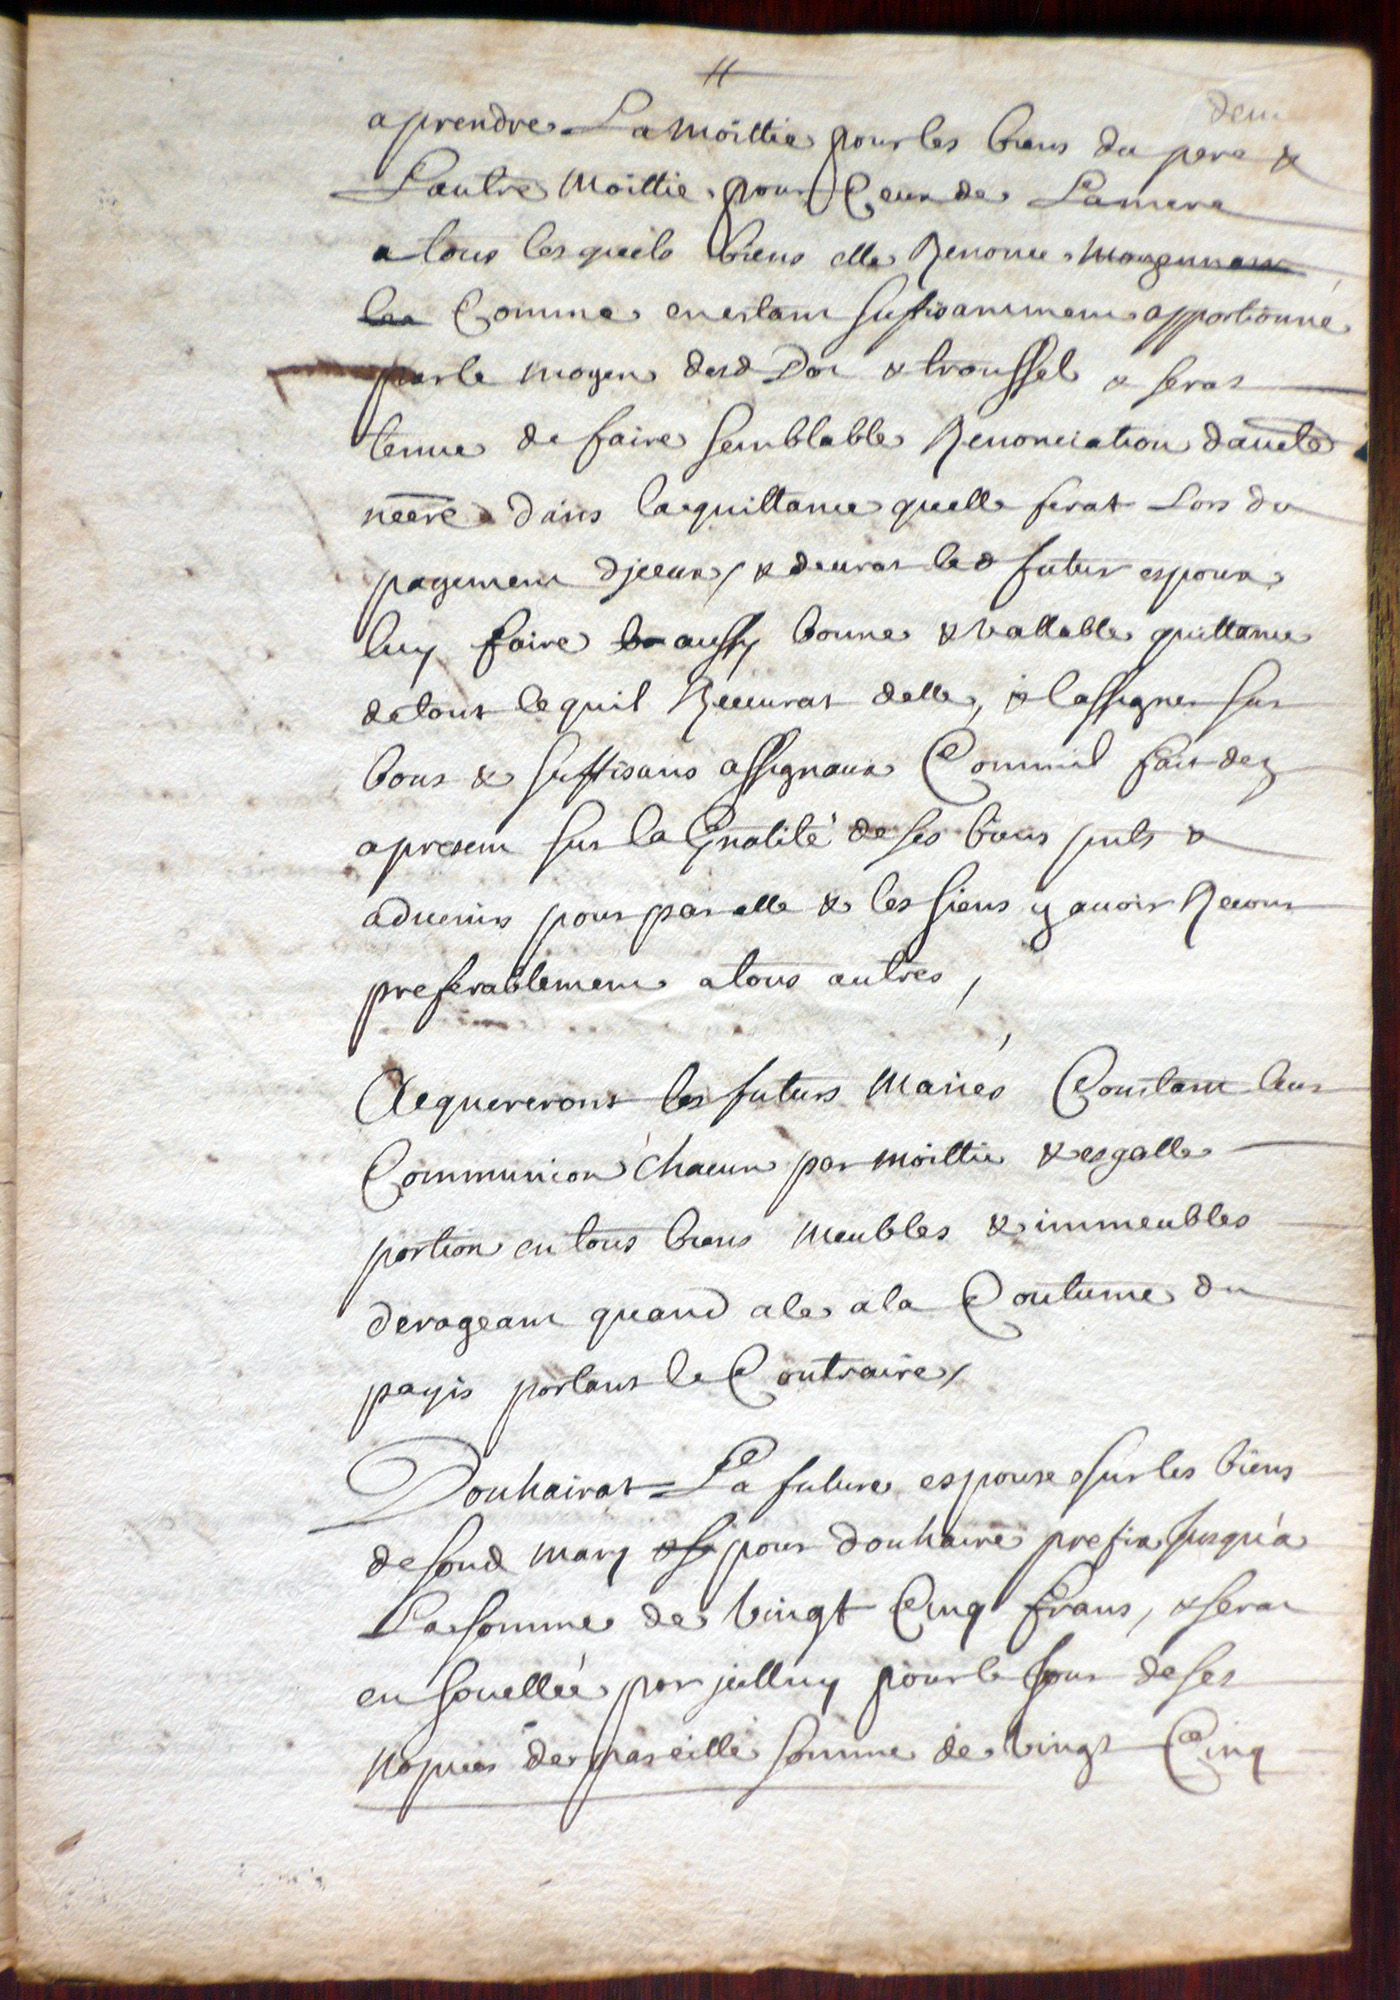 deux
aprendre La Moittie pour les biens du pere &
L'autre Moittie pour Ceux de La mere
a tous lesquels biens elle Renonce Moyennant
les Comme en estant suffisamment apportionné
par le moyen desd Dot & troussel & serat
tenue de faire semblable Renonciation d'aucte
necere dans la quittance quelle ferat Lors du
payement djceux / & deurat led futur espoux
luy faire bo aussy bonne & vallable quittance
de tout ce quil Receurat delle, & lassigner sur
bons & suffisans assignaux Comm'il fait dez
apresent sur la Gnalité de ses biens pnts &
aduenirs pour par elle & les siens y auoir Recour
preferablement a tous autres,
Acquereront les futurs Mariés Constant leur
Communion chacun par moittie & esgalle
portion en tous biens Meubles & immeubles
derogeant quand a ce a la Coutume du
payis portant le Contraire /
Douhairat La future espouse sur les biens
de sond mary & si pour douhaire prefix Jusqu'a
La somme de Vingt Cinq Frans, & serat
en jouellée par jcelluy pour le Jour de ses
Nopces de pareille somme de vingt Cinq